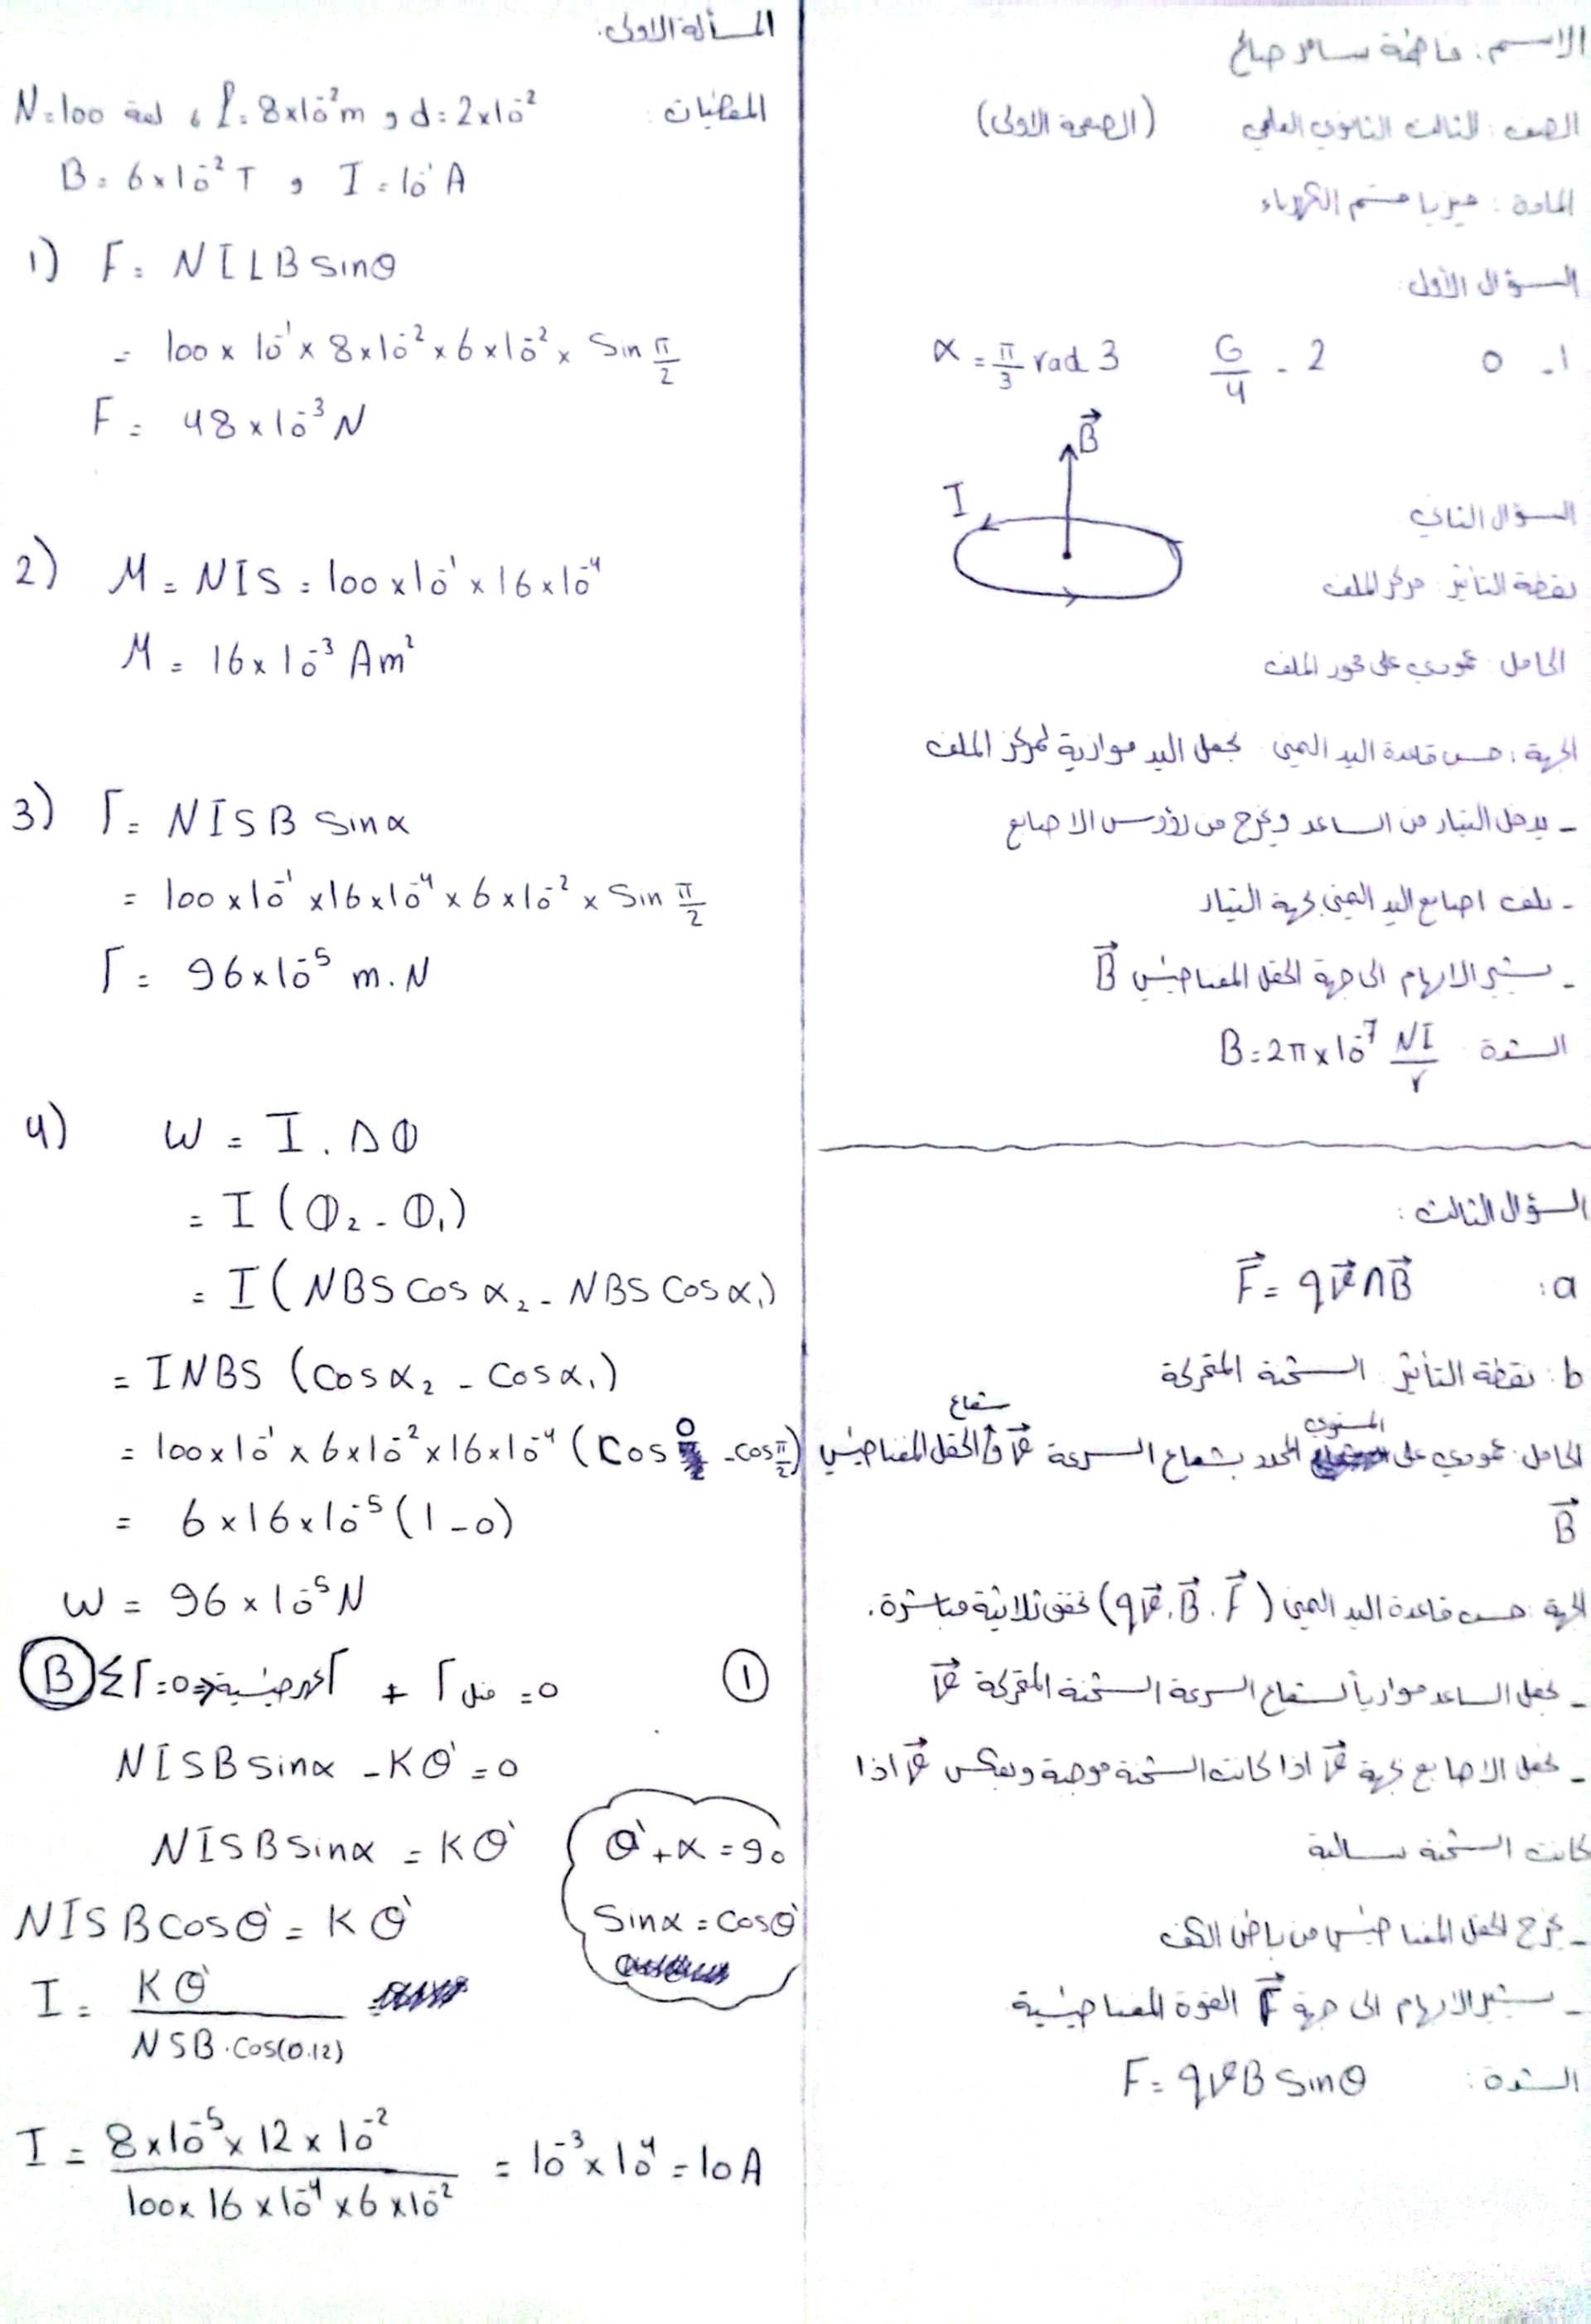 الاسم: فاطمة سامر صالح
الصف: الثالث الثانوي العلمي (الصفحة الاولى)
المادة: فيزيا قسم الكهرباء
السؤال الأول
1- 0 2- G/4 3 α = π/3 rad
B⃗
I
السؤال الثاني
نقطة التأثير: مركز الملف
الحامل: عمودي على محور الملف
الجهة: حسب قاعدة اليد اليمنى نجعل اليد موازية لمركز الملف
- يدخل التيار من الساعد ويخرج من رؤوس الاصابع
- نلف اصابع اليد اليمنى بجهة التيار
- يشير الابهام الى جهة الحقل المغناطيسي B⃗
الشدة B = 2π × 10⁻⁷ NI/r
السؤال الثالث:
a: F⃗ = qv⃗ ∧ B⃗
b: نقطة التأثير: الشحنة المتحركة
الحامل: عمودي على المستوي المحدد بشعاع السرعة v⃗ و شعاع الحقل المغناطيسي
B⃗
الجهة: حسب قاعدة اليد اليمنى (qv⃗, B⃗, F⃗) تحقق ثلاثية مباشرة.
- نجعل الساعد موازياً لشعاع السرعة الشحنة المتحركة v⃗
- نجعل الاصابع بجهة v⃗ اذا كانت الشحنة موجبة وبعكس v⃗ اذا
كانت الشحنة سالبة
- يخرج الحقل المغناطيسي من باطن الكف
- يشير الابهام الى جهة F⃗ القوة المغناطيسية
الشدة: F = qvB sinθ
المسألة الاولى:
المعطيات: N = 100 لفة ، L = 8×10⁻² m و d = 2×10⁻²
B = 6×10⁻² T و I = 10⁻¹ A
1) F = NILB sinθ
= 100 × 10⁻¹ × 8×10⁻² × 6×10⁻² × Sin π/2
F = 48×10⁻³ N
2) M = NIS = 100×10⁻¹ × 16×10⁻⁴
M = 16×10⁻³ Am²
3) Γ = NISB sinα
= 100×10⁻¹ ×16×10⁻⁴ × 6×10⁻² × Sin π/2
Γ = 96×10⁻⁵ m.N
4) W = I . ΔΦ
= I (Φ₂ - Φ₁)
= I (NBS cos α₂ - NBS cos α₁)
= INBS (cos α₂ - cos α₁)
= 100×10⁻¹ × 6×10⁻² × 16×10⁻⁴ (cos 0 - cos π/2)
= 6×16×10⁻⁵ (1-0)
W = 96×10⁻⁵ N
B ΣΓ = 0 ⇒ Γ كهرطيسية + Γ فتل = 0 ①
NISB sinα - Kθ' = 0
NISB sinα = Kθ'
θ' + α = 90
Sinα = cosθ'
NISB cosθ' = Kθ'
I = Kθ' / NSB . cos(0.12)
I = 8×10⁻⁵ × 12×10⁻² / 100×16×10⁻⁴ ×6×10⁻² = 10⁻³×10⁴ = 10A